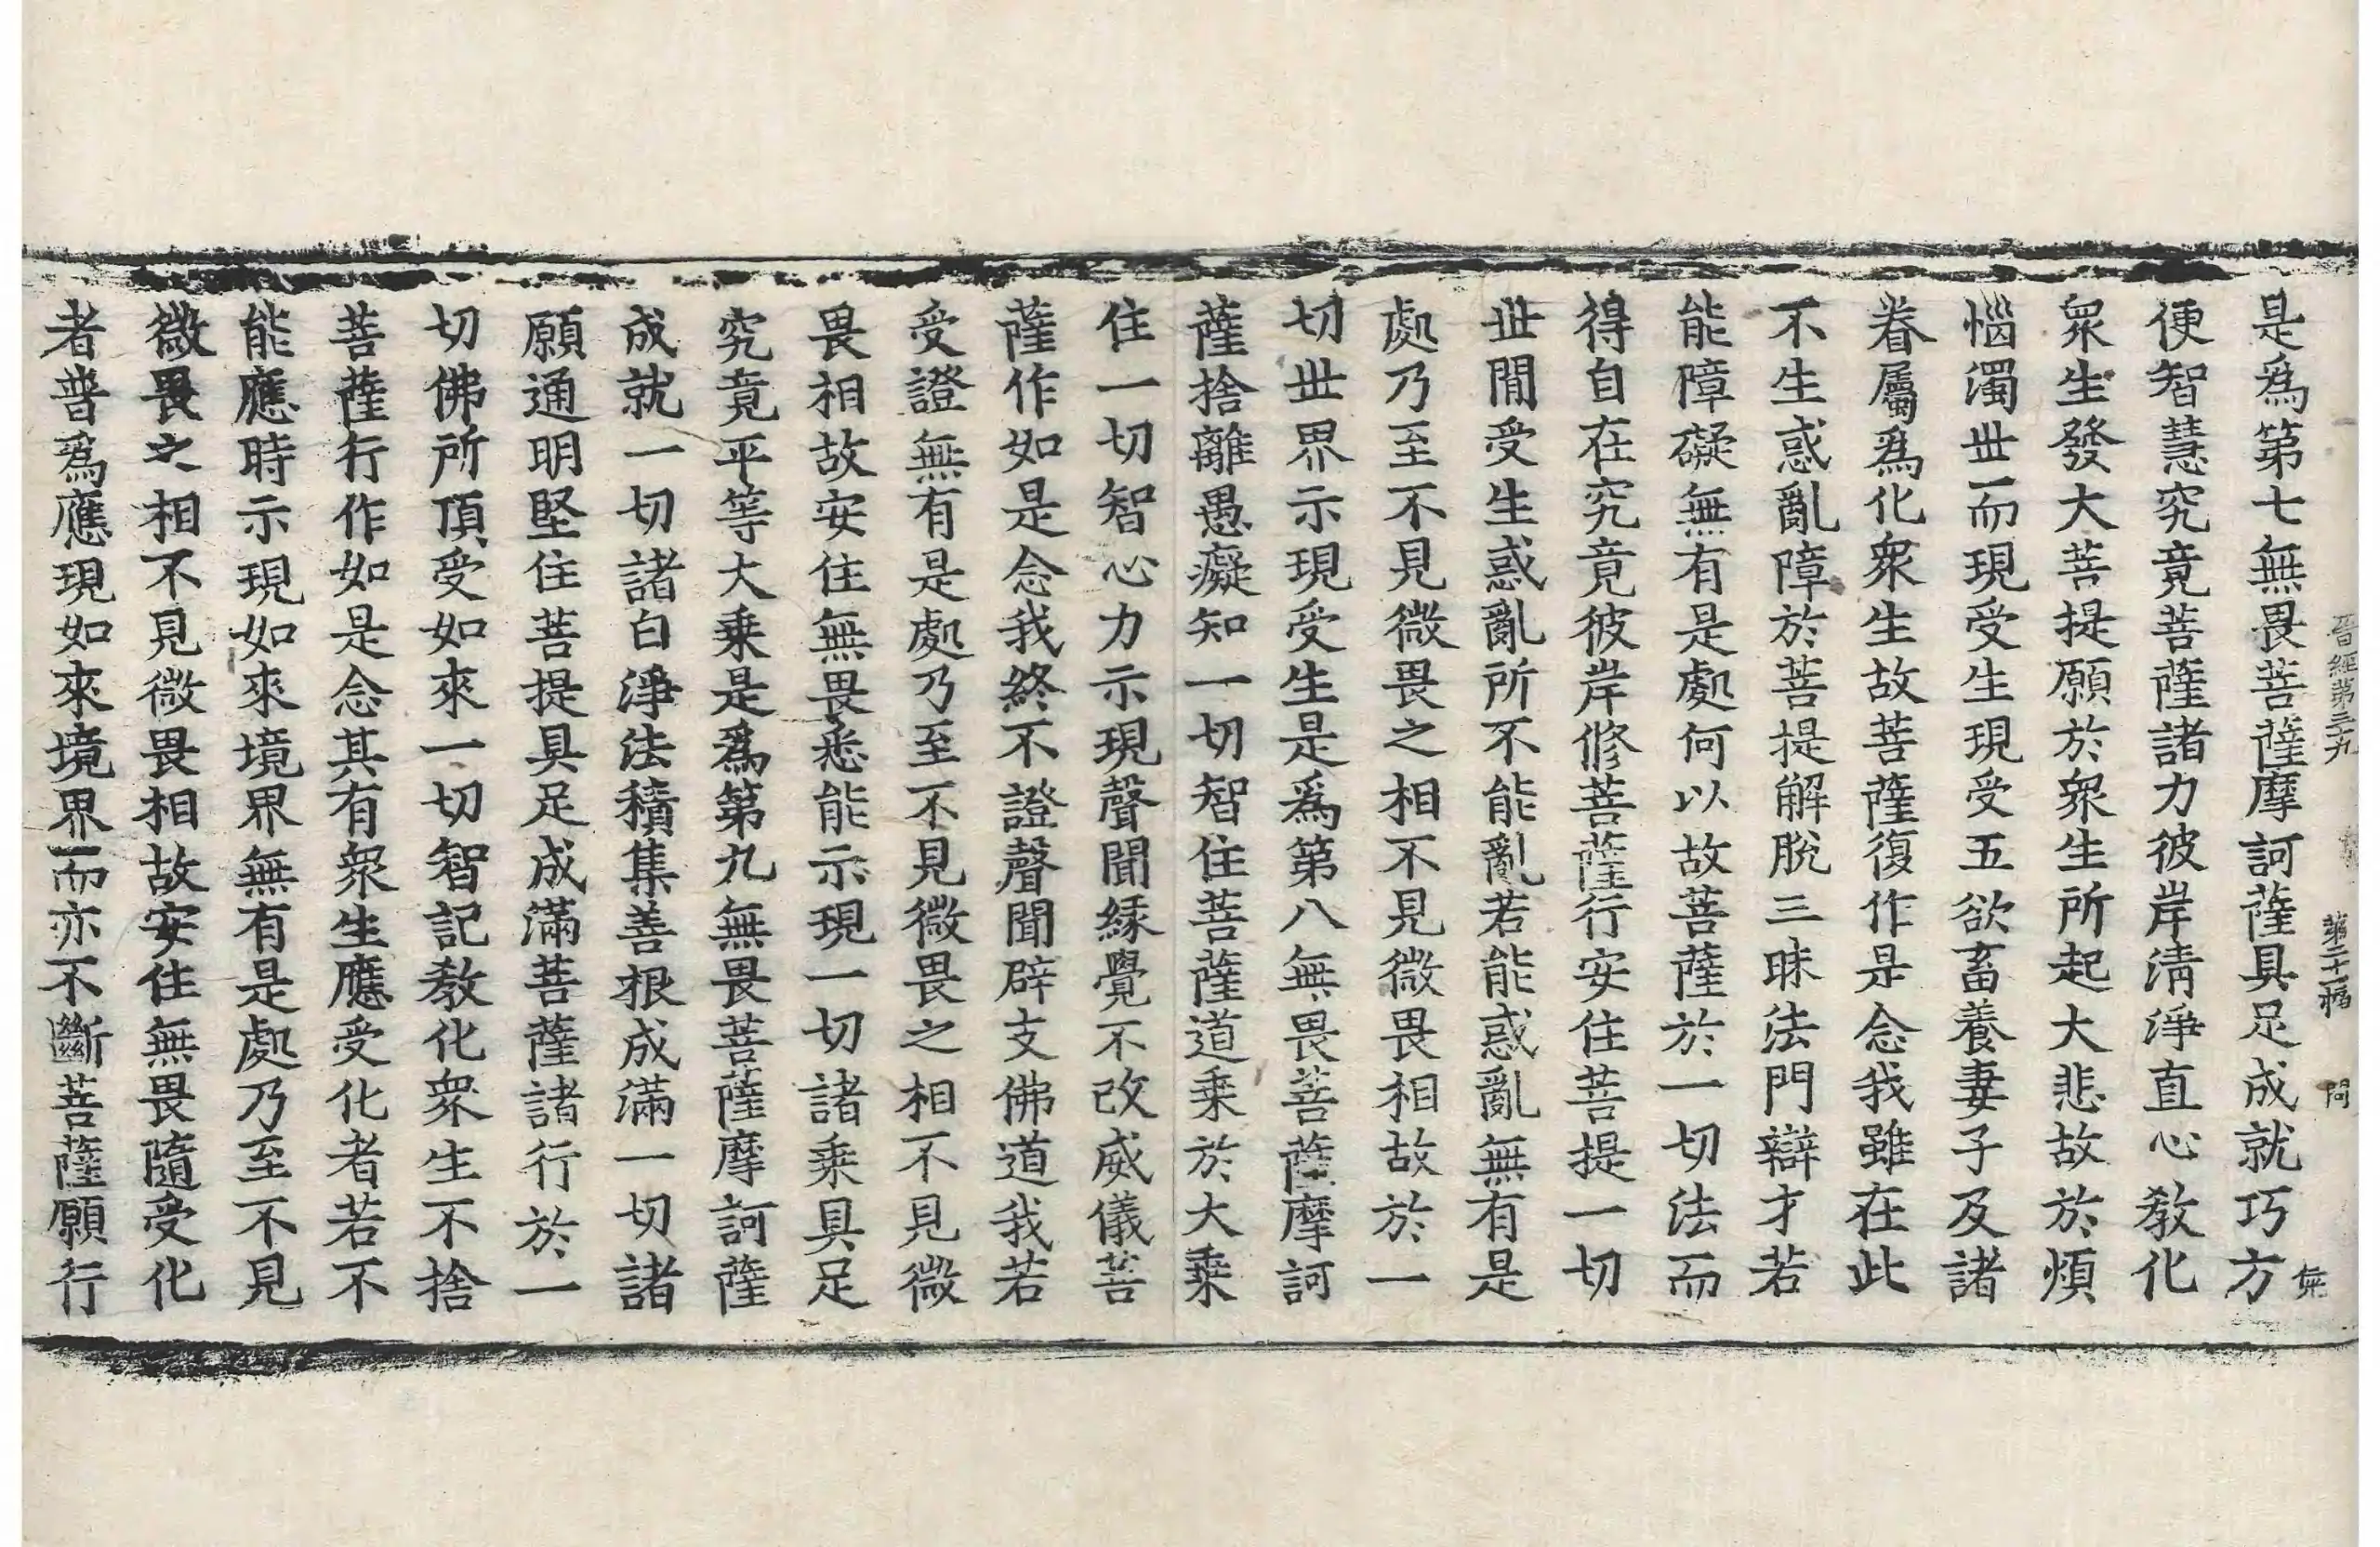 晉經第三十九 第二十一幅 問 無
是爲第七無畏菩薩摩訶薩具足成就巧方
便智慧究竟菩薩諸力彼岸清淨直心教化
衆生發大菩提願於衆生所起大悲故於煩
惱濁世而現受生現受五欲畜養妻子及諸
眷屬爲化衆生故菩薩復作是念我雖在此
不生惑亂障於菩提解脫三昧法門辯才若
能障礙無有是處何以故菩薩於一切法而
得自在究竟彼岸修菩薩行安住菩提一切
世閒受生惑亂所不能亂若能惑亂無有是
處乃至不見微畏之相不見微畏相故於一
切世界示現受生是爲第八無畏菩薩摩訶
薩捨離愚癡知一切智住菩薩道乗於大乗
住一切智心力示現聲聞縁覺不改威儀菩
薩作如是念我終不證聲聞辟支佛道我若
受證無有是處乃至不見微畏之相不見微
畏相故安住無畏悉能示現一切諸乗具足
究竟平等大乗是爲第九無畏菩薩摩訶薩
成就一切諸白淨法積集善根成滿一切諸
願通明堅住菩提具足成滿菩薩諸行於一
切佛所頂受如來一切智記教化衆生不捨
菩薩行作如是念其有衆生應受化者若不
能應時示現如來境界無有是處乃至不見
微畏之相不見微畏相故安住無畏隨受化
者普爲應現如來境界而亦不斷菩薩願行